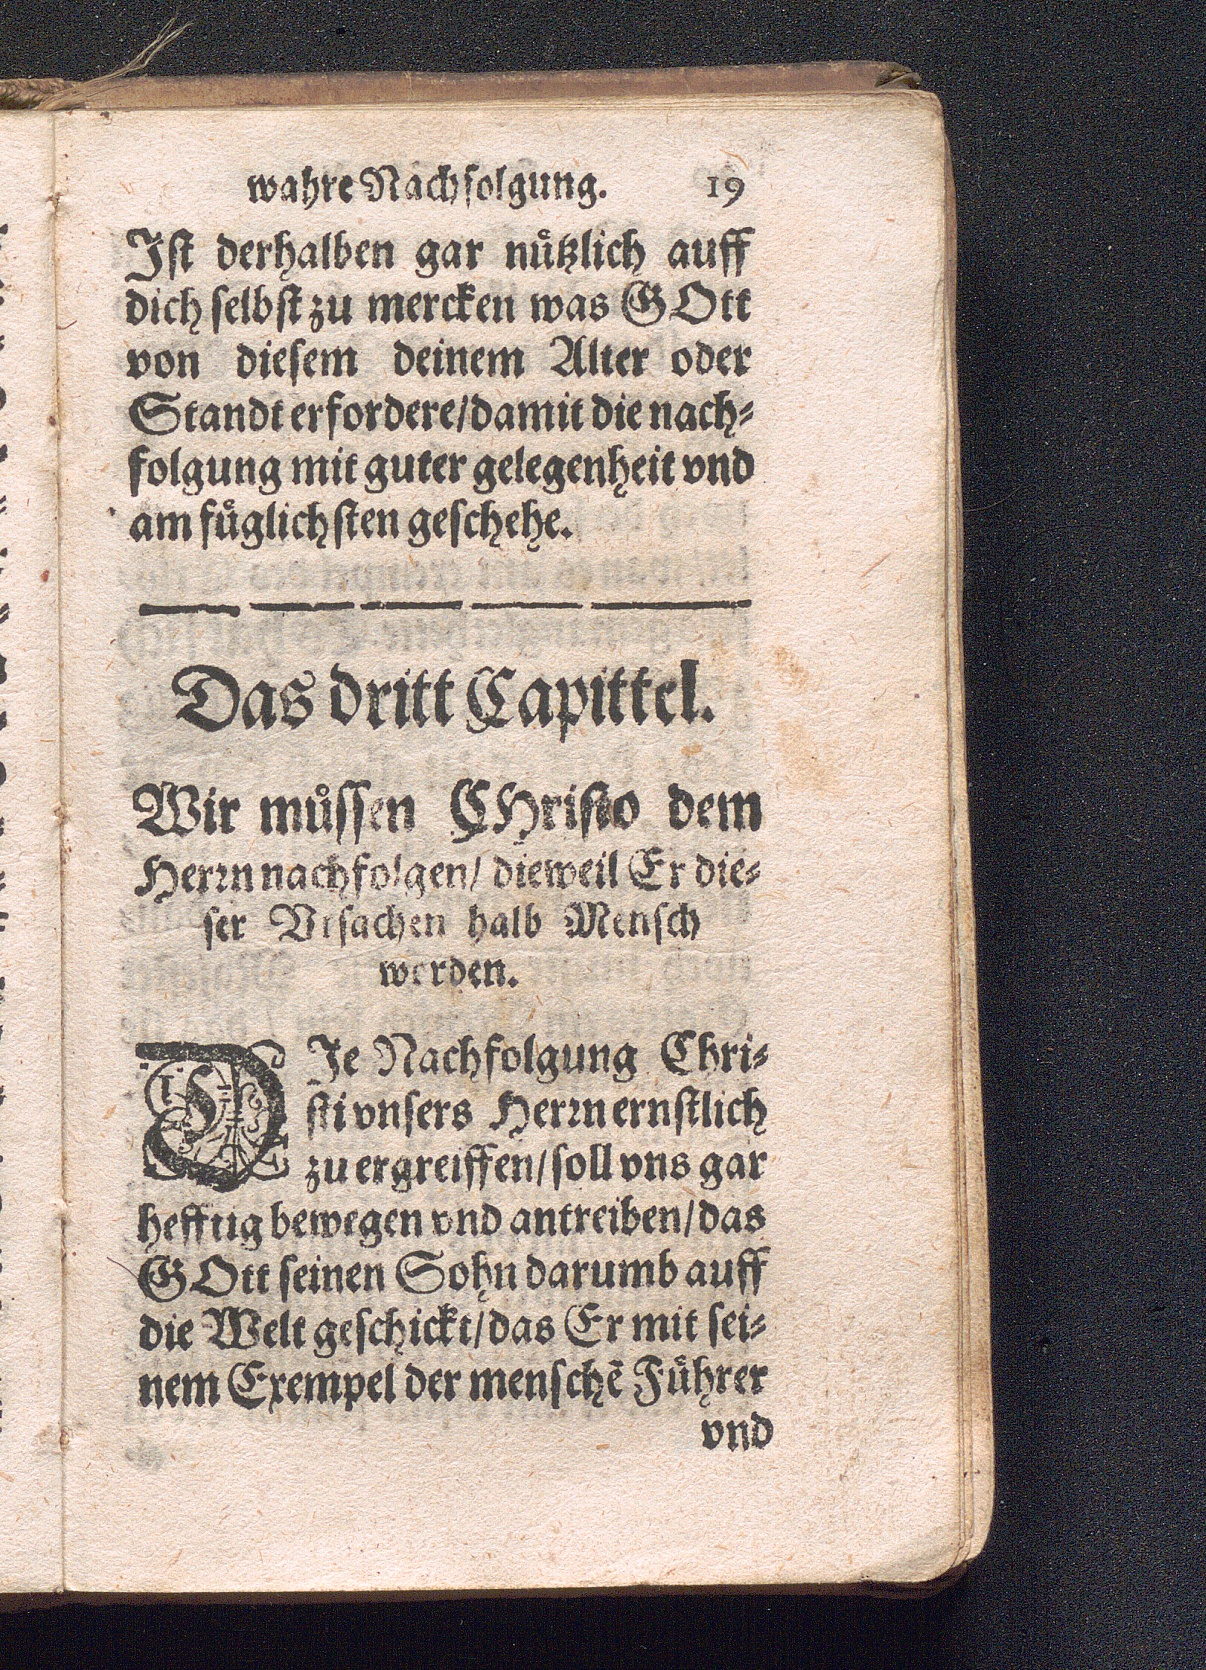 wahre Nachfolgung. 19
Iſt derhalben gar nuͤtzlich auff
dich ſelbſt zu mercken was GOtt
von dieſem deinem Alter oder
Standt erfordere/damit die nach⸗
folgung mit guter gelegenheit vnd
am fuͤglichſten geſchehe.
Das dritt Capittel.
Wir muͤſſen CHriſto dem
Herꝛn nachfolgen/ dieweil Er die⸗
ſer Vrſachen halb Menſch
worden.
DIe Nachfolgung Chri⸗
ſti vnſers Herꝛn ernſtlich
zu ergreiffen/ſoll vns gar
hefftig bewegen vnd antreiben/das
GOtt ſeinen Sohn darumb auff
die Welt geſchickt/das Er mit ſei⸗
nem Exempel der menſchẽ Fuͤhrer
vnd